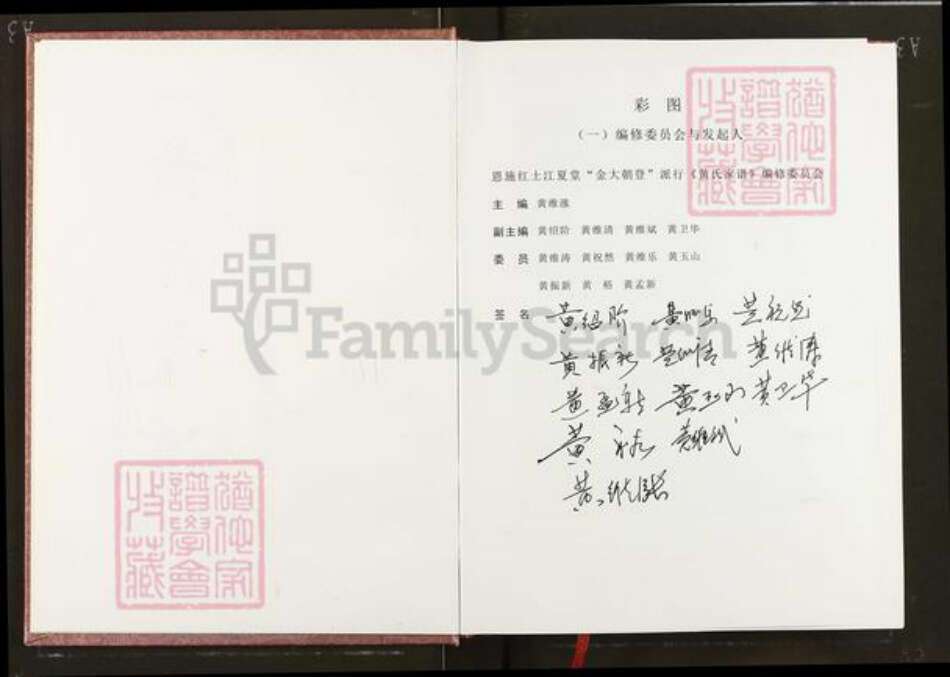 彩 图
（一）编修委员会与发起人
恩施红土江夏堂“金大朝登”派行《黄氏家谱》编修委员会
主 编 黄维涨
副主编 黄绍阶 黄维清 黄维斌 黄卫华
委 员 黄维涛 黄祝然 黄维乐 黄玉山
黄振新 黄 裕 黄孟新
签 名 黄绍阶 黄维乐 黄祝然
黄振新 黄维清 黄维涛
黄孟新 黄玉山 黄卫华
黄 裕 黄维斌
黄维涨
FamilySearch
猶他家
譜學會
收藏
猶他家
譜學會
收藏
A3
A3